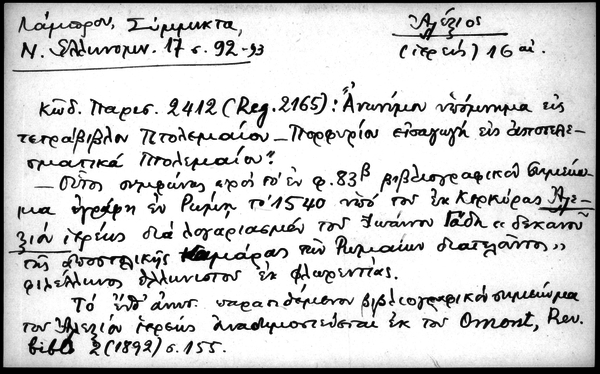 Λάμπρου, Σύμμικτα,
Ν. Ελληνομν. 17 σ. 92-93
Ἀλέξιος
(ἱερεύς) 16 αἰ.
Κῶδ. Παρισ. 2412 (Reg. 2165): "Ἀνωνύμου ὑπόμνημα εἰς
τετράβιβλον Πτολεμαίου – Πορφυρίου εἰσαγωγὴ εἰς ἀποτελε-
σματικὰ Πτολεμαίου".
– Οὗτος συμφώνως πρὸς τὸ ἐν φ. 83β βιβλιογραφικὸν σημείω-
μα ἐγράφη ἐν Ρώμῃ τὸ 1540 ὑπὸ τοῦ ἐκ Κερκύρας Ἀλε-
ξίου ἱερέως διὰ λογαριασμὸν τοῦ Ἰωάννου Γάδη «δεκανοῦ
τῆς ἀποστολικῆς καμάρας τῶν Ρωμαίων διατελοῦντος»
φιλέλληνος ἑλληνιστοῦ ἐκ Φλωρεντίας.
Τὸ παρατιθέμενον βιβλιογραφικὸν σημείωμα
τοῦ Ἀλεξίου ἱερέως ἀναδημοσιεύεται ἐκ τοῦ Omont, Rev.
bibl. 2 (1892) σ. 155.